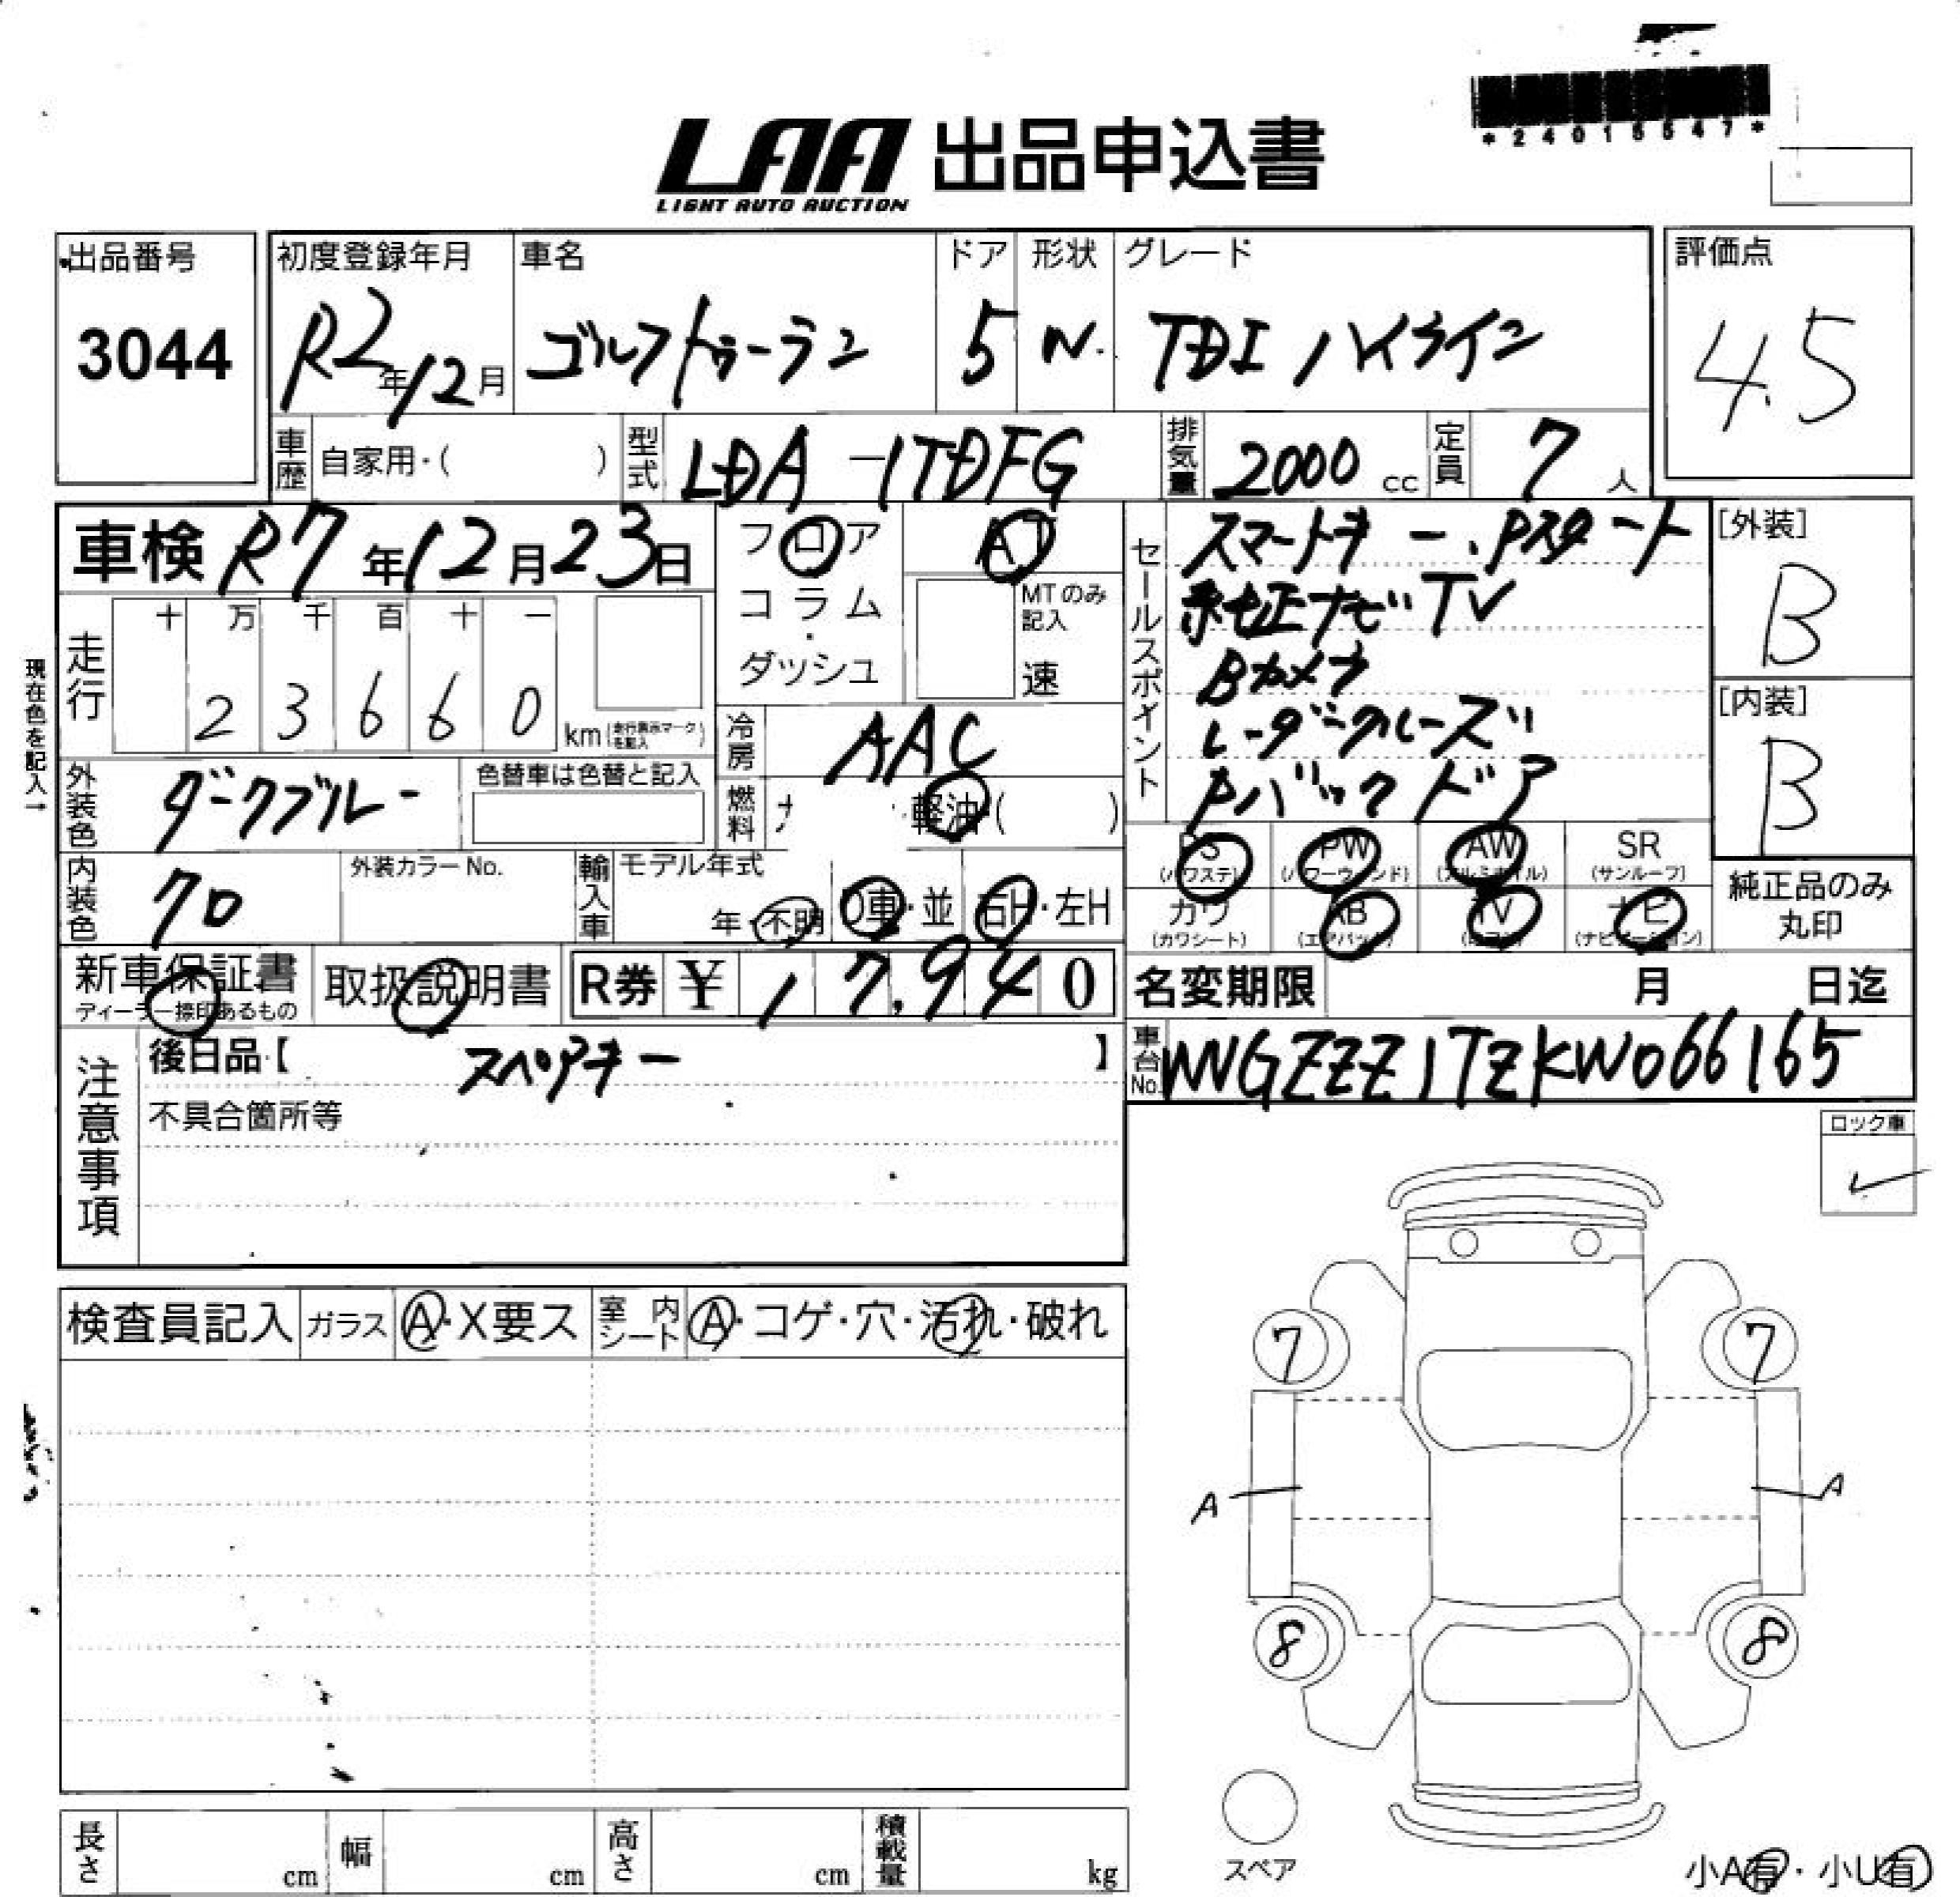 *24015547*
LAA 出品申込書
LIGHT AUTO AUCTION
出品番号
3044
初度登録年月
R2年12月
車名
ゴルフトゥーラン
ドア
5
形状
W.
グレード
TDI ハイライン
評価点
4.5
車歴 自家用・( )
型式 LDA-1TDFG
排気量 2000 cc
定員 7 人
車検 R7年12月23日
フロア
コラム
・
ダッシュ
AT
MTのみ
記入
速
セールスポイント
スマートキー.Pスタート
純正ナビTV
Bカメラ
レーダークルーズ
Pバックドア
[外装]
B
[内装]
B
現在色を記入→
走行
十 万 千 百 十 一
2 3 6 6 0
km(走行異示マークを記入)
冷房 AAC
外装色 ダークブルー
色替車は色替と記入
燃料 軽油( )
内装色 クロ
外装カラーNo.
輸入車 モデル年式
年・不明
D車・並
右H・左H
PS
(パワステ)
PW
(パワーウィンド)
AW
(アルミホイル)
SR
(サンルーフ)
カワ
(カワシート)
AB
(エアバック)
TV
ナビ
(ナビゲーション)
純正品のみ
丸印
新車保証書
ディーラー捺印あるもの
取扱説明書
R券 ¥ 17,940
名変期限 月 日迄
車台No. WVGZZZ1TZKW066165
注意事項
後日品【 スペアキー 】
不具合箇所等
ロック車
✓
検査員記入
ガラス A・X要ス
室内シート A・コゲ・穴・汚れ・破れ
7
7
A
A
8
8
スペア
小A有・小U有
長さ cm
幅 cm
高さ cm
積載量 kg